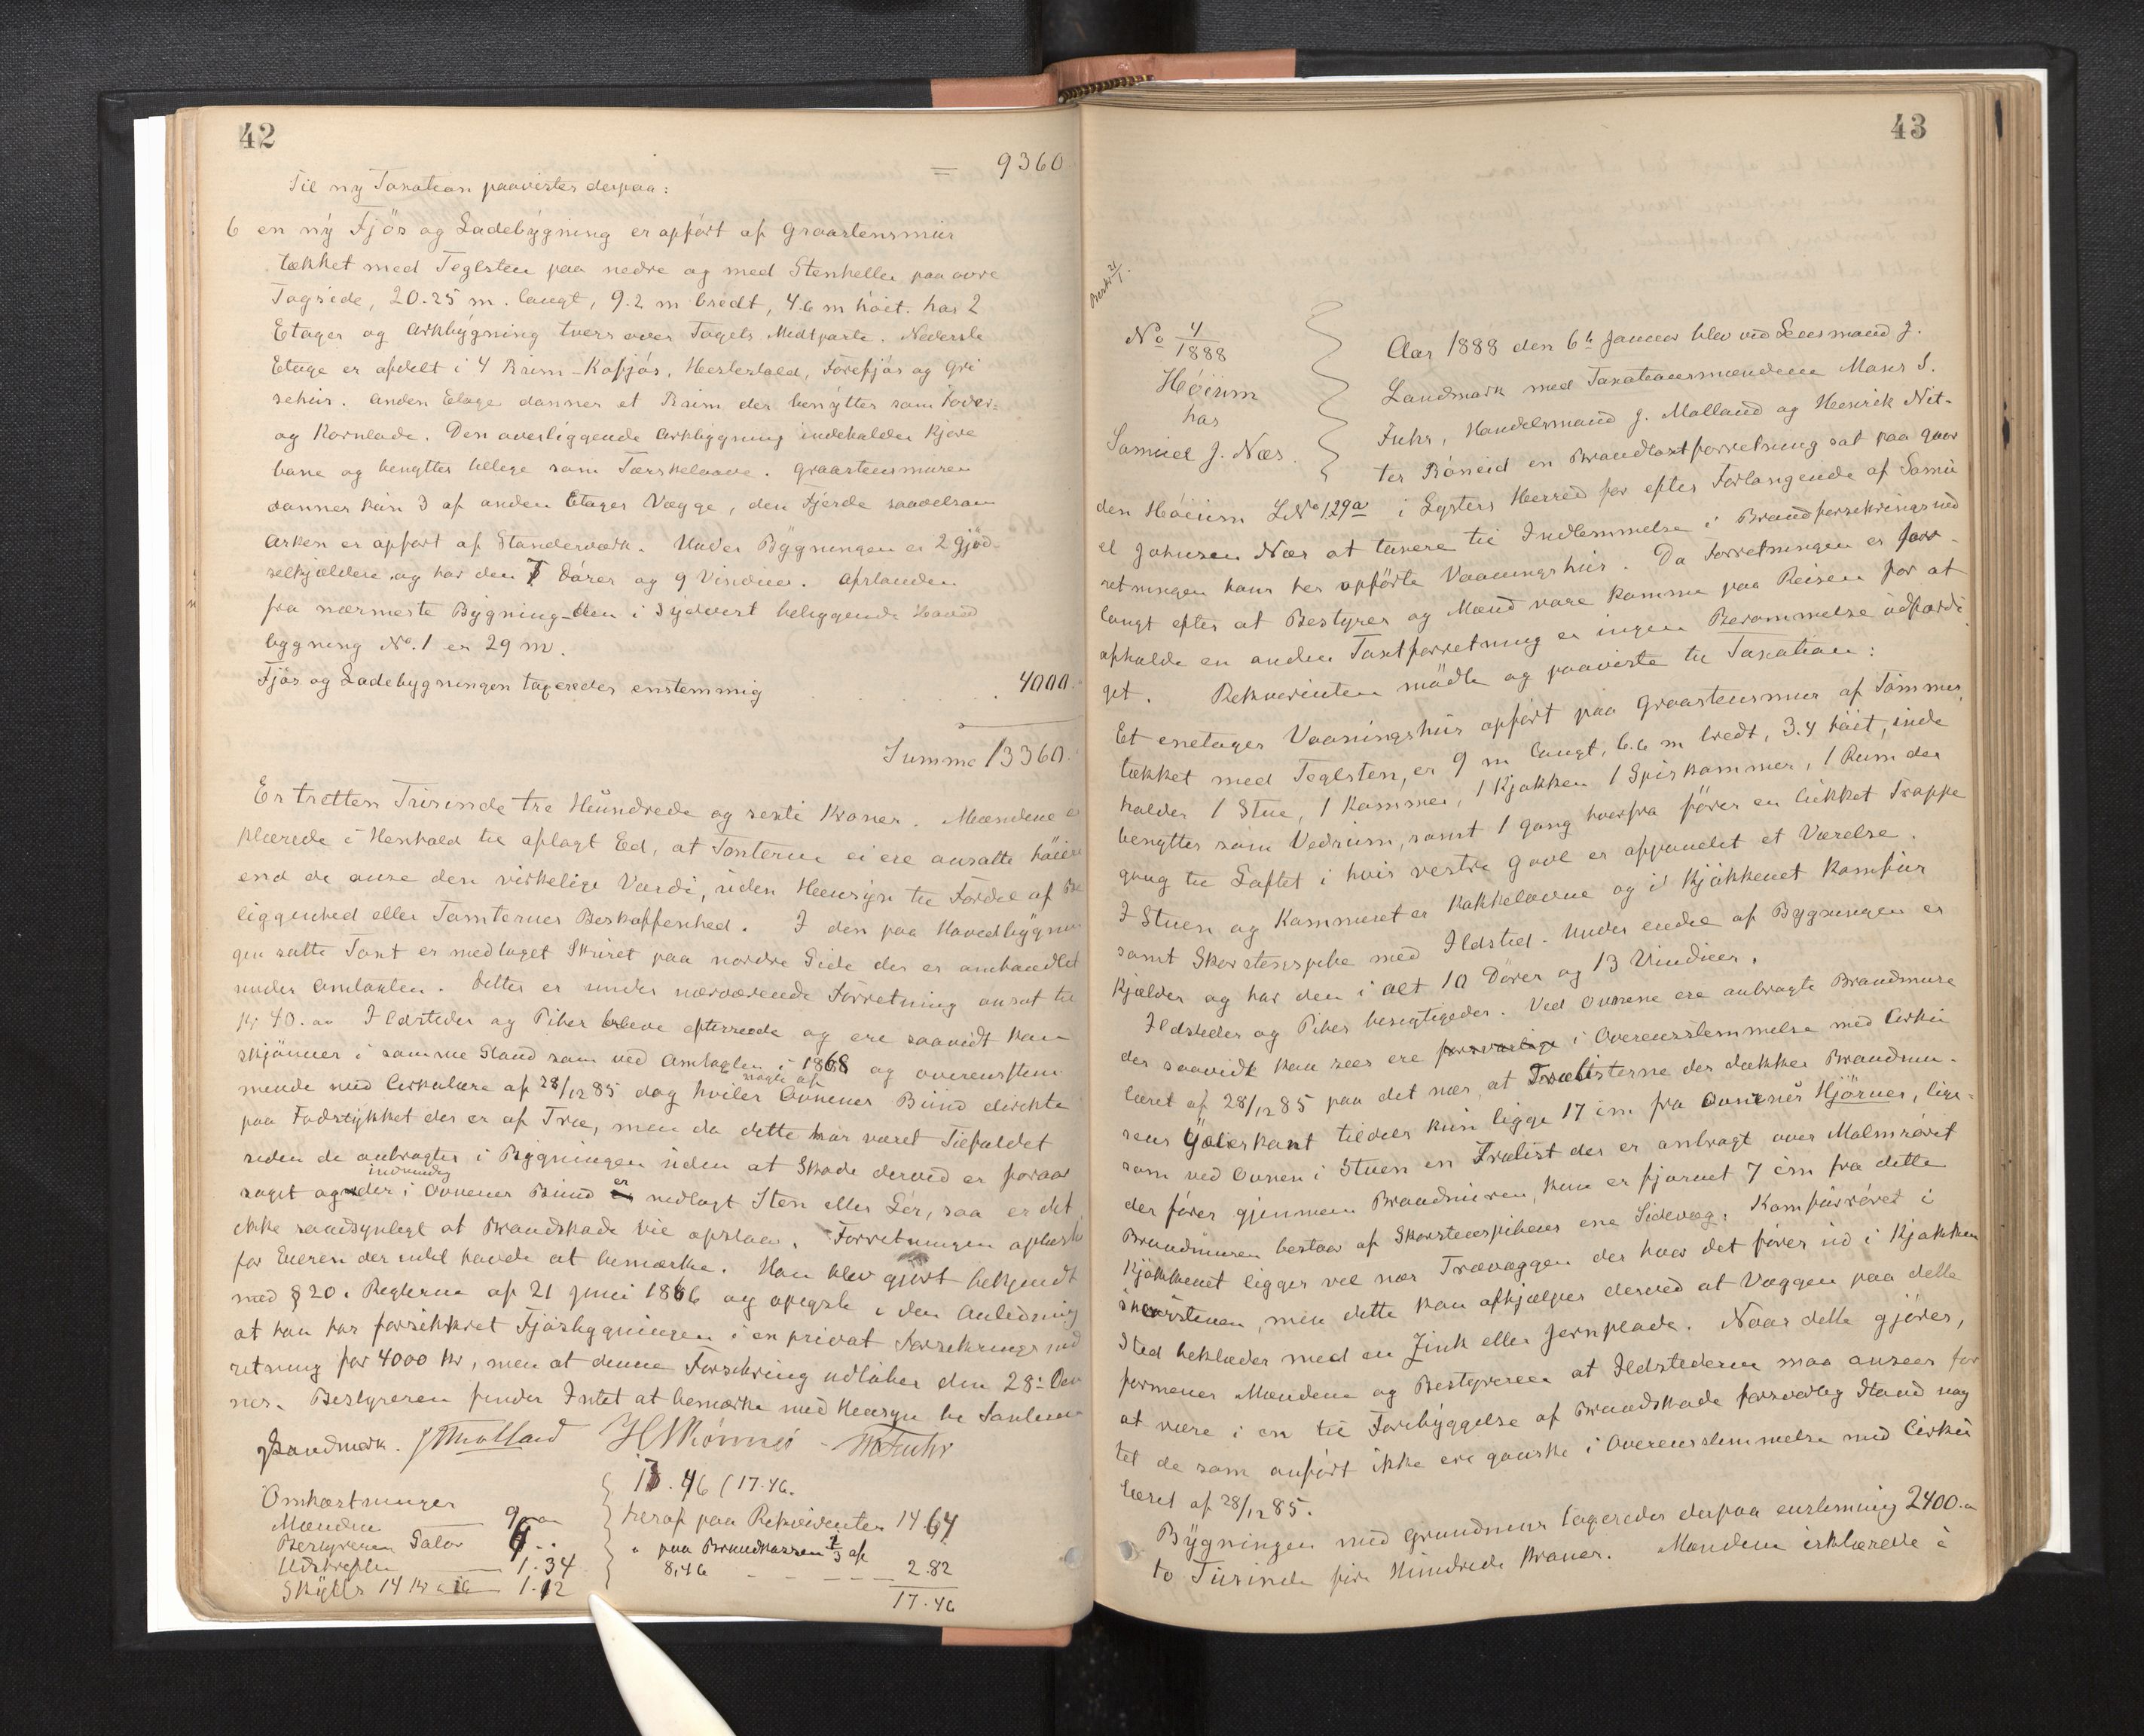 42
= 9360
Til ny Taxation paavistes derpaa:
6 en ny Fjös og Ladebygning er opfört af Graastensmur
tækket med Teglsten paa nedre og med Stenheller paa övre
Tagside, 20.25 m. langt, 9.2 m bredt, 4.6 m höit. har 2
Etager og Arkbygning tvers over Tagets Midtparti. Nederste
Etage er afdelt i 4 Rum - Kofjös, Hestestald, Forefjös og Gri
sehus. Anden Etage danner et Rum der benyttes som Foder-
og Kornlade. Den overliggende Arkbygning indeholder Kjöre
bane og benyttes tillige som Tærskelaave. Graastensmuren
danner kun 3 af anden Etages Vægge, den Fjerde saavelsom
Arken er opfört af Standerværk. Under Bygningen er 2 Gjöd-
selkjældere og har den 7 Dörer og 9 Vinduer. Afstanden
fra nærmeste Bygning - den i Sydvest beliggende Hoved
bygning No. 1 er 29 m.
Fjös og Ladebygningen tageredes enstemmig 4000.
Summa 13360.
Er tretten Tusinde tre Hundrede og sexti Kroner. Mændene er
klærede i Henhold til aflagt Ed, at Taxterne ei ere ansatte höiere
end de anse den virkelige Værdi, uden Hensyn til Fordel af Be
liggenhed eller Tomternes Beskaffenhed. I den paa Hovedbygnin
gen satte Taxt er medtaget Skuret paa nordre Side der er omhandlet
under Omtaxten. Dette er under nærværende Forretning ansat til
Kr 40.00 Ildsteder og Piber bleve efterseede og ere saavidt kan
skjönnes i samme Stand som ved Omtaxten i 1868 og overenstem
mende med Cirkulære af 28/12 85 dog hviler nogle af Ovnenes Bund direkte
paa Fodstykket der er af Træ, men da dette har været Tilfældet
siden de anbragtes i Bygningen uden at Skade derved er foraar
saget og der indvendig i Ovnenes Bund er nedlagt Sten eller Ler, saa er det
ikke sandsynligt at Brandskade vil opstaa. Forretningen oplæst
for Eieren der intet havde at bemærke. Han blev gjort bekjendt
med § 20 i Reglerne af 21 Juni 1886 og opgav i den Anledning
at han har forsikkret Fjösbygningen i en privat Forsikringsind
retning for 4000 Kr, men at denne Forsikring udlöber den 28de Den
nes. Bestyreren finder Intet at bemærke med Hensyn til Taxterne
J Landmark. J Molland HS Rönnei - MSFuhr
Omkostninger
Mændene 9.00
Bestyreren Salær 6..
Udskreften 1.34
Skyds 14 Kr a 16 1.12
17.46 (17.46.
heraf paa Rekvirenten 14.64
" paa Brandkassen 1/3 af
8,46 - - - - - - 2.82
17.46
43
Besk. 21/1.
No 4/1888
Höium
hos
Samuel J. Næs.
Aar 1888 den 6te Januar blev ved Lensmand J.
Landmark med Taxationsmændene Mons S.
Fuhr, Handelsmand J. Molland og Henrik Nit-
ter Röneid en Brandtaxtforretning sat paa Gaar
den Höium LNo 129a i Lysters Herred for efter Forlangende af Samu
el Johnsen Næs at taxere til Indlemmelse i Brandforsikringsind
retningen hans her opförte Vaaningshus. Da Forretningen er for-
langt efter at Bestyrer og Mænd vare komne paa Reisen for at
afholde en anden Taxtforretning er ingen Berammelse udfærdi
get. Rekvirenten mödte og paaviste til Taxation:
Et enetages Vaaningshus opfört paa Graastensmur af Tömmer,
tækket med Teglsten, er 9 m langt, 6.6 m bredt, 3.4 höit, inde
holder 1 Stue, 1 Kammer, 1 Kjökken 1 Spiskammer, 1 Rum der
benyttes som Vedrum, samt 1 Gang hvorfra förer en lukket Trappe
gang til Loftet i hvis vestre Gavl er afpanelet et Værelse.
I Stuen og Kammeret er Kakkelovne og i Kjökkenet Komfur
samt Skorstenspibe med Ildsted. Under endel af Bygningen er
Kjælder og har den i alt 10 Dörer og 13 Vinduer.
Ildsteder og Piber besigtigedes. Ved Ovnene ere anbragte Brandmure
der saavidt kan sees ere forsvarlige i Overensstemmelse med Cirku
læret af 28/12 85 paa det nær, at Trælisterne der dækker Brandmu-
rens Ydterkant tildels kun ligge 17 cm fra Ovnenes Hjörner, lige-
som ved Ovnen i Stuen en Træliste der er anbragt over Malmröret
der förer gjennem Brandmuren, kun er fjernet 7 cm fra dette
Brandmuren bestaar af Skorstenspibens ene Sidevæg. Komfurröret i
Kjökkenet ligger vel nær Trævæggen der hvor det förer ud i Kjökken
skorstenen, men dette kan afhjælpes derved at Væggen paa dette
Sted beklædes med en Zink eller Jernplade. Naar dette gjöres,
formener Mændene og Bestyreren at Ildstederne maa ansees for
at være i en til Forebyggelse af Brandskade forsvarlig Stand uag
tet de som anfört ikke ere ganske i Overensstemmelse med Cirku
læret af 28/12 85.
Bygningen med Grundmur tageredes derpaa enstemmig 2400.00
to Tusinde fire Hundrede Kroner. Mændene erklærede i